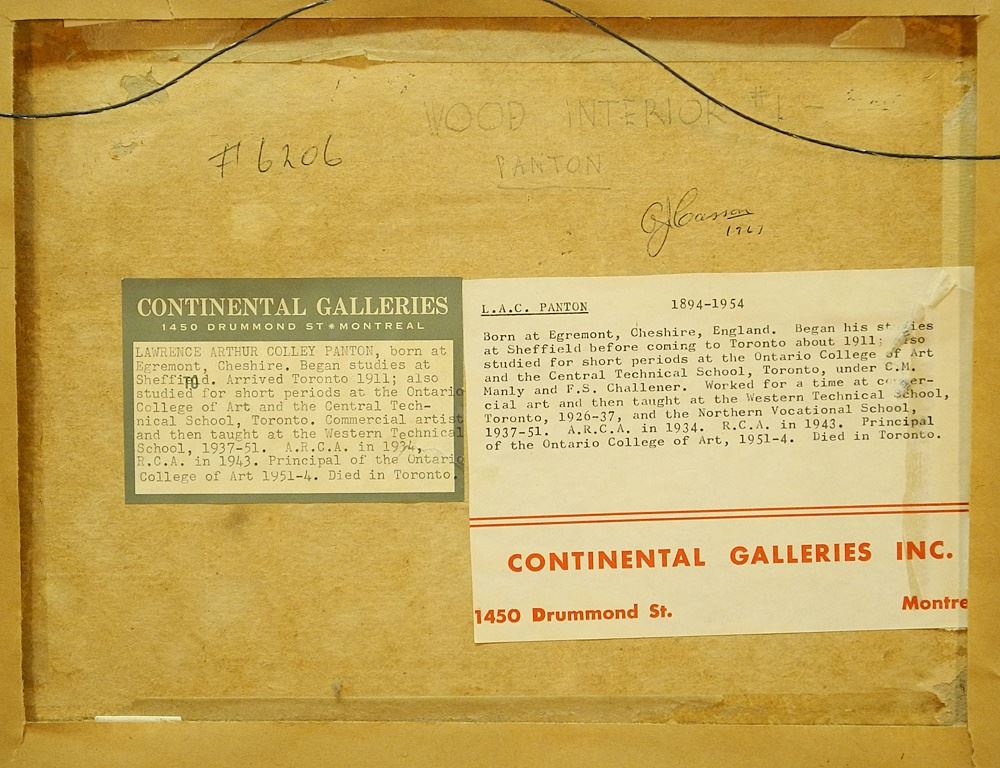 WOOD INTERIOR #1 -
#6206
PANTON
AJCasson
1967
CONTINENTAL GALLERIES
1450 DRUMMOND ST * MONTREAL
LAWRENCE ARTHUR COLLEY PANTON, born at
Egremont, Cheshire. Began studies at
Sheffield. Arrived Toronto 1911; also
TO
studied for short periods at the Ontario
College of Art and the Central Tech-
nical School, Toronto. Commercial artist
and then taught at the Western Technical
School, 1937-51. A.R.C.A. in 1934,
R.C.A. in 1943. Principal of the Ontario
College of Art 1951-4. Died in Toronto.
L.A.C. PANTON 1894-1954
Born at Egremont, Cheshire, England. Began his studies
at Sheffield before coming to Toronto about 1911; also
studied for short periods at the Ontario College of Art
and the Central Technical School, Toronto, under C.M.
Manly and F.S. Challener. Worked for a time at commer-
cial art and then taught at the Western Technical School,
Toronto, 1926-37, and the Northern Vocational School,
1937-51. A.R.C.A. in 1934. R.C.A. in 1943. Principal
of the Ontario College of Art, 1951-4. Died in Toronto.
CONTINENTAL GALLERIES INC.
1450 Drummond St. Montre